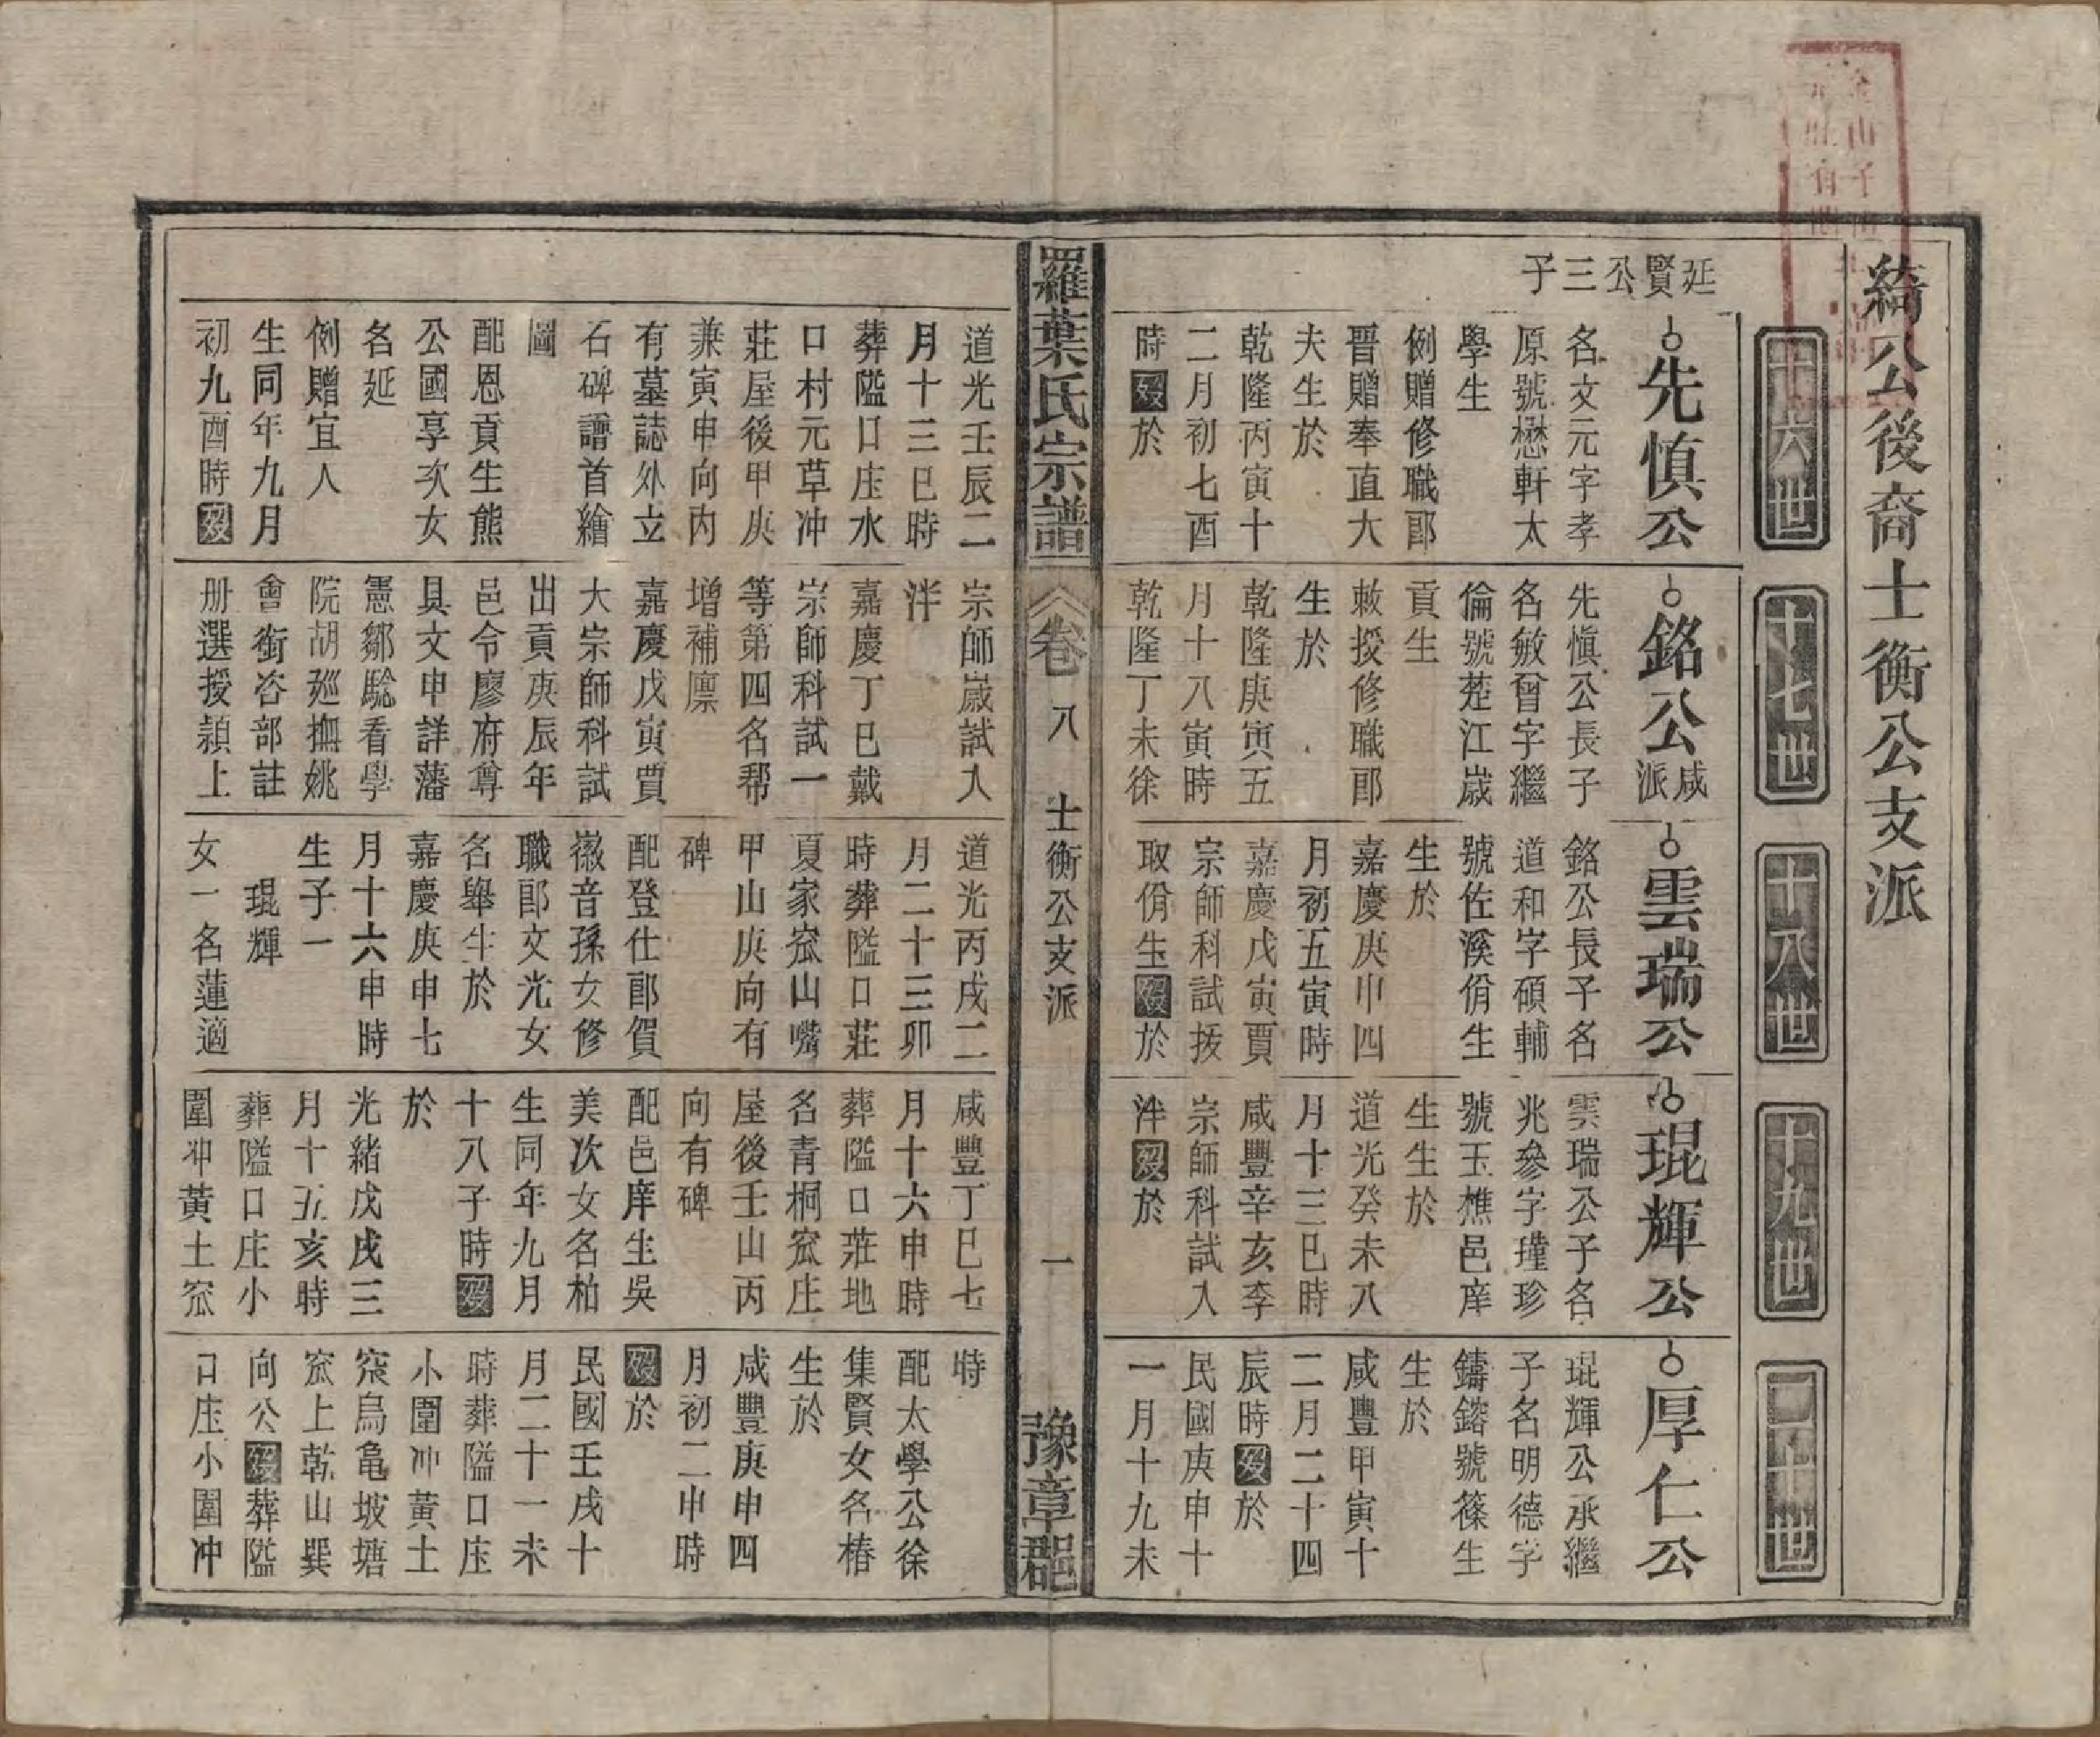 綺公後裔士衡公支派
十六世
十七世
十八世
十九世
二十世
延賢公三子
先慎公
名文元字孝
原號懋軒太
學生
例贈修職郎
晋贈奉直大
夫生於
乾隆丙寅十
二月初七酉
時歿於
銘公咸派
先愼公長子
名敏曾字繼
倫號茬江歲
貢生
敕授修職郎
生於
乾隆庚寅五
月十八寅時
乾隆丁未徐
雲瑞公
銘公長子名
道和字碩輔
號佐溪佾生
生於
嘉慶庚申四
月初五寅時
嘉慶戊寅賈
宗師科試拔
取佾生歿於
琨輝公
雲瑞公子名
兆參字瑾珍
號玉樵邑庠
生生於
道光癸未八
月十三巳時
咸豐辛亥李
宗師科試入
泮歿於
厚仁公
琨輝公承繼
子名明德字
鑄鎔號篠生
生於
咸豐甲寅十
二月二十四
辰時歿於
民國庚申十
一月十九未
羅葉氏宗譜
卷八
士衡公支派
一
豫章郡
道光壬辰二
月十三巳時
葬隘口庄水
口村元草冲
莊屋後甲庚
兼寅申向内
有墓誌外立
石碑譜首繪
圖
配恩貢生熊
公國享次女
名延
例贈宜人
生同年九月
初九酉時歿
宗師歲試入
泮
嘉慶丁巳戴
宗師科試一
等第四名帮
增補廪
嘉慶戊寅賈
大宗師科試
出貢庚辰年
邑令廖府尊
具文申詳藩
憲鄒驗看學
院胡廵撫姚
會銜咨部註
册選授潁上
道光丙戌二
月二十三卯
時葬隘口莊
夏家窊山嘴
甲山庚向有
碑
配登仕郎賀
徽音孫女修
職郎文光女
名舉生於
嘉慶庚申七
月十六申時
生子一
琨輝
女一名蓮適
咸豐丁巳七
月十六申時
葬隘口莊地
名青桐窊庄
屋後壬山丙
向有碑
配邑庠生吳
美次女名柏
生同年九月
十八子時歿
於
光緒戊戌三
月十五亥時
葬隘口庄小
圍冲黃土窊
時
配太學公徐
集賢女名椿
生於
咸豐庚申四
月初二申時
歿於
民國壬戌十
月二十一未
時葬隘口庄
小圍冲黃土
窊烏龟坡塘
窊上乾山巽
向公歿葬隘
口庄小圍冲